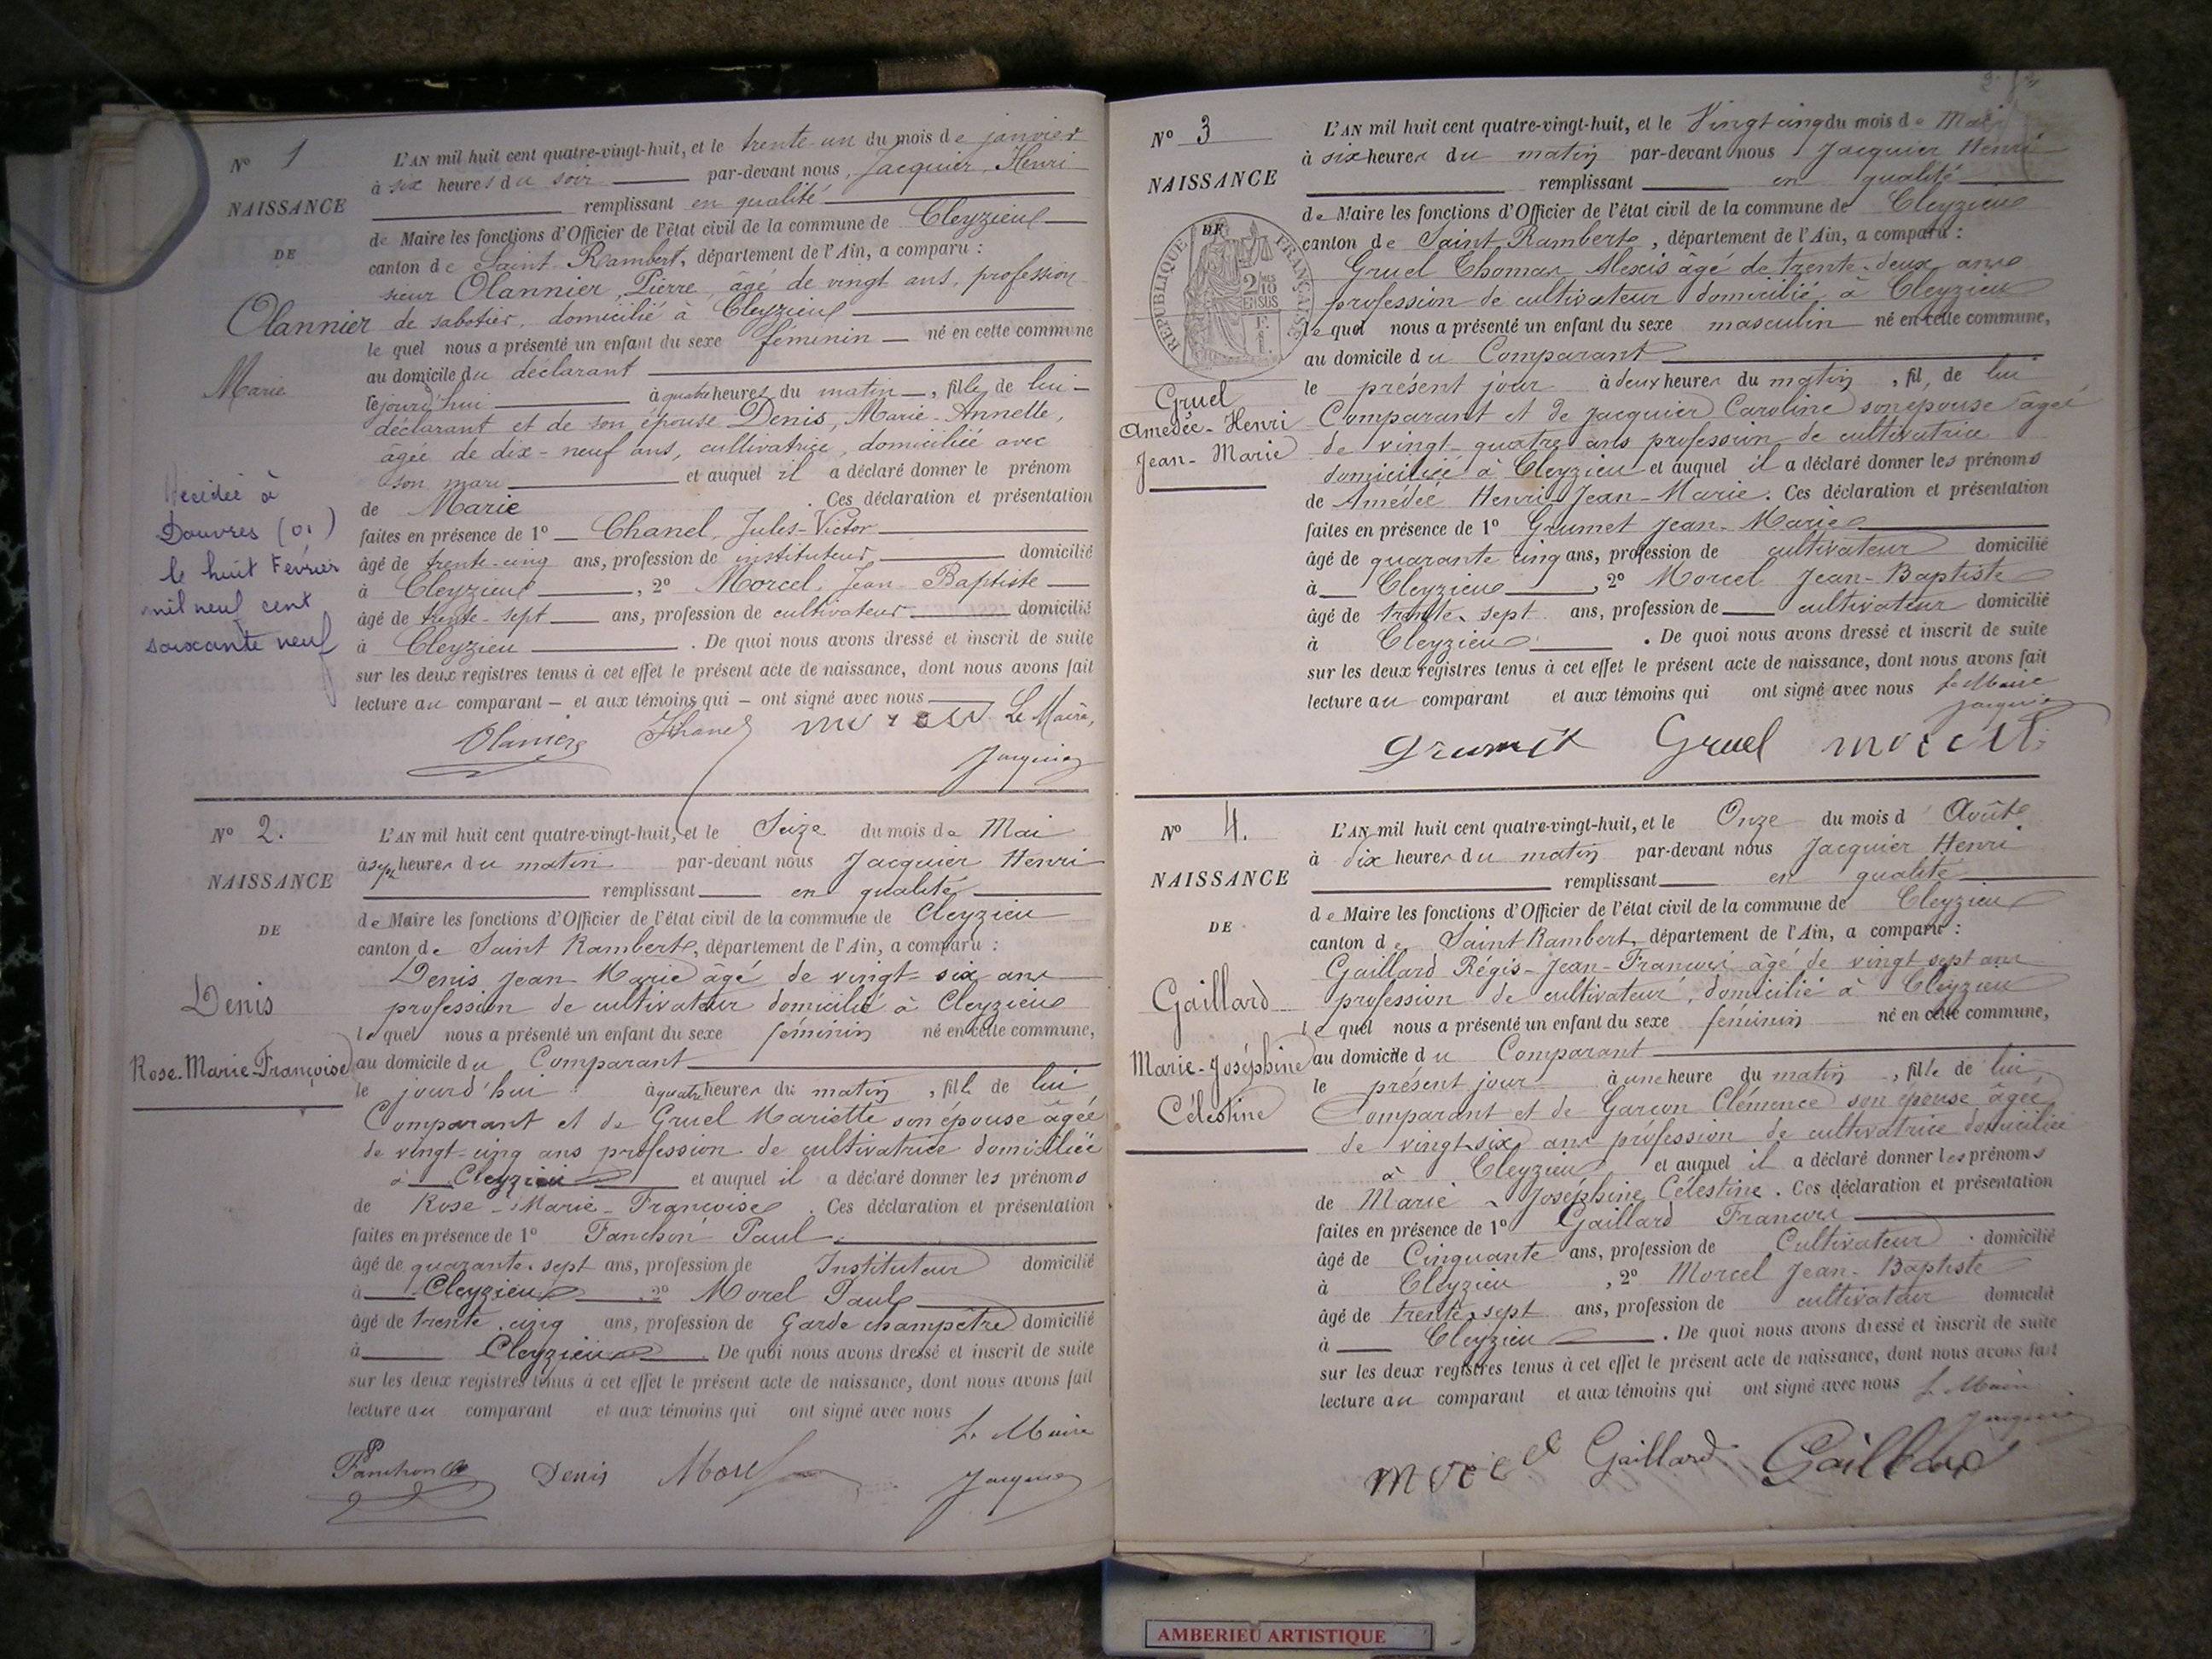 N° 1
NAISSANCE
DE
Olannier
Marie
Décédée à
Douvres (01)
le huit Février
mil neuf cent
soixante neuf
L'AN mil huit cent quatre-vingt-huit, et le trente-un du mois de janvier
à six heures du soir par-devant nous, Jacquier, Henri
remplissant en qualité
de Maire les fonctions d'Officier de l'état civil de la commune de Cleyzieu
canton de Saint-Rambert, département de l'Ain, a comparu :
sieur Olannier, Pierre, âgé de vingt ans, profession
de sabotier, domicilié à Cleyzieu
le quel nous a présenté un enfant du sexe féminin né en cette commune
au domicile du déclarant
le jourd'hui à quatre heures du matin, fille de lui
déclarant et de son épouse Denis, Marie-Annette,
âgée de dix-neuf ans, cultivatrice, domiciliée avec
son mari et auquel il a déclaré donner le prénom
de Marie. Ces déclaration et présentation
faites en présence de 1° Chanel, Jules-Victor
âgé de trente-cinq ans, profession de instituteur domicilié
à Cleyzieu, 2° Morcel, Jean-Baptiste
âgé de trente-sept ans, profession de cultivateur domicilié
à Cleyzieu. De quoi nous avons dressé et inscrit de suite
sur les deux registres tenus à cet effet le présent acte de naissance, dont nous avons fait
lecture au comparant et aux témoins qui ont signé avec nous Le Maire,
Olannier Chanel morcel
Jacquier
N° 2.
NAISSANCE
DE
Denis
Rose-Marie-Françoise
L'AN mil huit cent quatre-vingt-huit, et le Seize du mois de Mai
à sept heures du matin par-devant nous Jacquier Henri
remplissant en qualité
de Maire les fonctions d'Officier de l'état civil de la commune de Cleyzieu
canton de Saint Rambert, département de l'Ain, a comparu :
Denis Jean-Marie âgé de vingt-six ans
profession de cultivateur domicilié à Cleyzieu
le quel nous a présenté un enfant du sexe féminin né en cette commune,
au domicile du Comparant
le jourd'hui à quatre heures du matin, fille de lui
Comparant et de Gruel Mariette son épouse âgée
de vingt-cinq ans profession de cultivatrice domiciliée
à Cleyzieu et auquel il a déclaré donner les prénoms
de Rose-Marie-Françoise. Ces déclaration et présentation
faites en présence de 1° Fanchon Paul
âgé de quarante-sept ans, profession de Instituteur domicilié
à Cleyzieu, 2° Morel Paul
âgé de trente-cinq ans, profession de Garde champêtre domicilié
à Cleyzieu. De quoi nous avons dressé et inscrit de suite
sur les deux registres tenus à cet effet le présent acte de naissance, dont nous avons fait
lecture au comparant et aux témoins qui ont signé avec nous
Le Maire
Fanchon Denis Morel Jacquier
N° 3
NAISSANCE
DE
RÉPUBLIQUE FRANÇAISE
2/10 EN SUS
Gruel
Amédée-Henri
Jean-Marie
L'AN mil huit cent quatre-vingt-huit, et le Vingt cinq du mois de Mai
à six heures du matin par-devant nous Jacquier Henri
remplissant en qualité
de Maire les fonctions d'Officier de l'état civil de la commune de Cleyzieu
canton de Saint Rambert, département de l'Ain, a comparu :
Gruel Thomas Alexis âgé de trente-deux ans
profession de cultivateur domicilié à Cleyzieu
le quel nous a présenté un enfant du sexe masculin né en cette commune,
au domicile du Comparant
le présent jour à deux heures du matin, fil, de lui
Comparant et de Jacquier Caroline son épouse âgée
de vingt-quatre ans profession de cultivatrice
domiciliée à Cleyzieu et auquel il a déclaré donner les prénoms
de Amédée Henri Jean-Marie. Ces déclaration et présentation
faites en présence de 1° Grumet Jean-Marie
âgé de quarante cinq ans, profession de cultivateur domicilié
à Cleyzieu, 2° Morcel Jean-Baptiste
âgé de trente-sept ans, profession de cultivateur domicilié
à Cleyzieu. De quoi nous avons dressé et inscrit de suite
sur les deux registres tenus à cet effet le présent acte de naissance, dont nous avons fait
lecture au comparant et aux témoins qui ont signé avec nous Le Maire
Jacquier
Grumet Gruel morcel
N° 4.
NAISSANCE
DE
Gaillard
Marie-Joséphine
Célestine
L'AN mil huit cent quatre-vingt-huit, et le Onze du mois d'Août
à dix heures du matin par-devant nous Jacquier Henri
remplissant en qualité
de Maire les fonctions d'Officier de l'état civil de la commune de Cleyzieu
canton de Saint Rambert, département de l'Ain, a comparu :
Gaillard Régis-Jean-François âgé de vingt sept ans
profession de cultivateur, domicilié à Cleyzieu
le quel nous a présenté un enfant du sexe féminin né en cette commune,
au domicile du Comparant
le présent jour à une heure du matin, fille de lui
Comparant et de Garçon Clémence son épouse âgée
de vingt six ans profession de cultivatrice domiciliée
à Cleyzieu et auquel il a déclaré donner les prénoms
de Marie-Joséphine Célestine. Ces déclaration et présentation
faites en présence de 1° Gaillard François
âgé de Cinquante ans, profession de Cultivateur domicilié
à Cleyzieu, 2° Morcel Jean-Baptiste
âgé de trente-sept ans, profession de cultivateur domicilié
à Cleyzieu. De quoi nous avons dressé et inscrit de suite
sur les deux registres tenus à cet effet le présent acte de naissance, dont nous avons fait
lecture au comparant et aux témoins qui ont signé avec nous Le Maire
Jacquier
morcel Gaillard Gaillard
AMBERIEU ARTISTIQUE